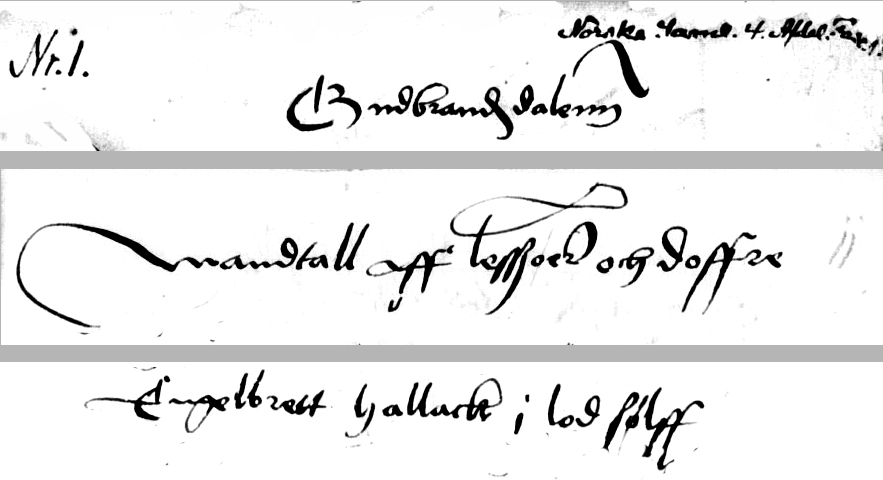 Norska Saml. 4. Afdel. Fasc. 1.
Nr. 1.
Gudbrandsdalenn
Mandtall aff lessøer och doffre
Engelbrett hallack j lod sølff